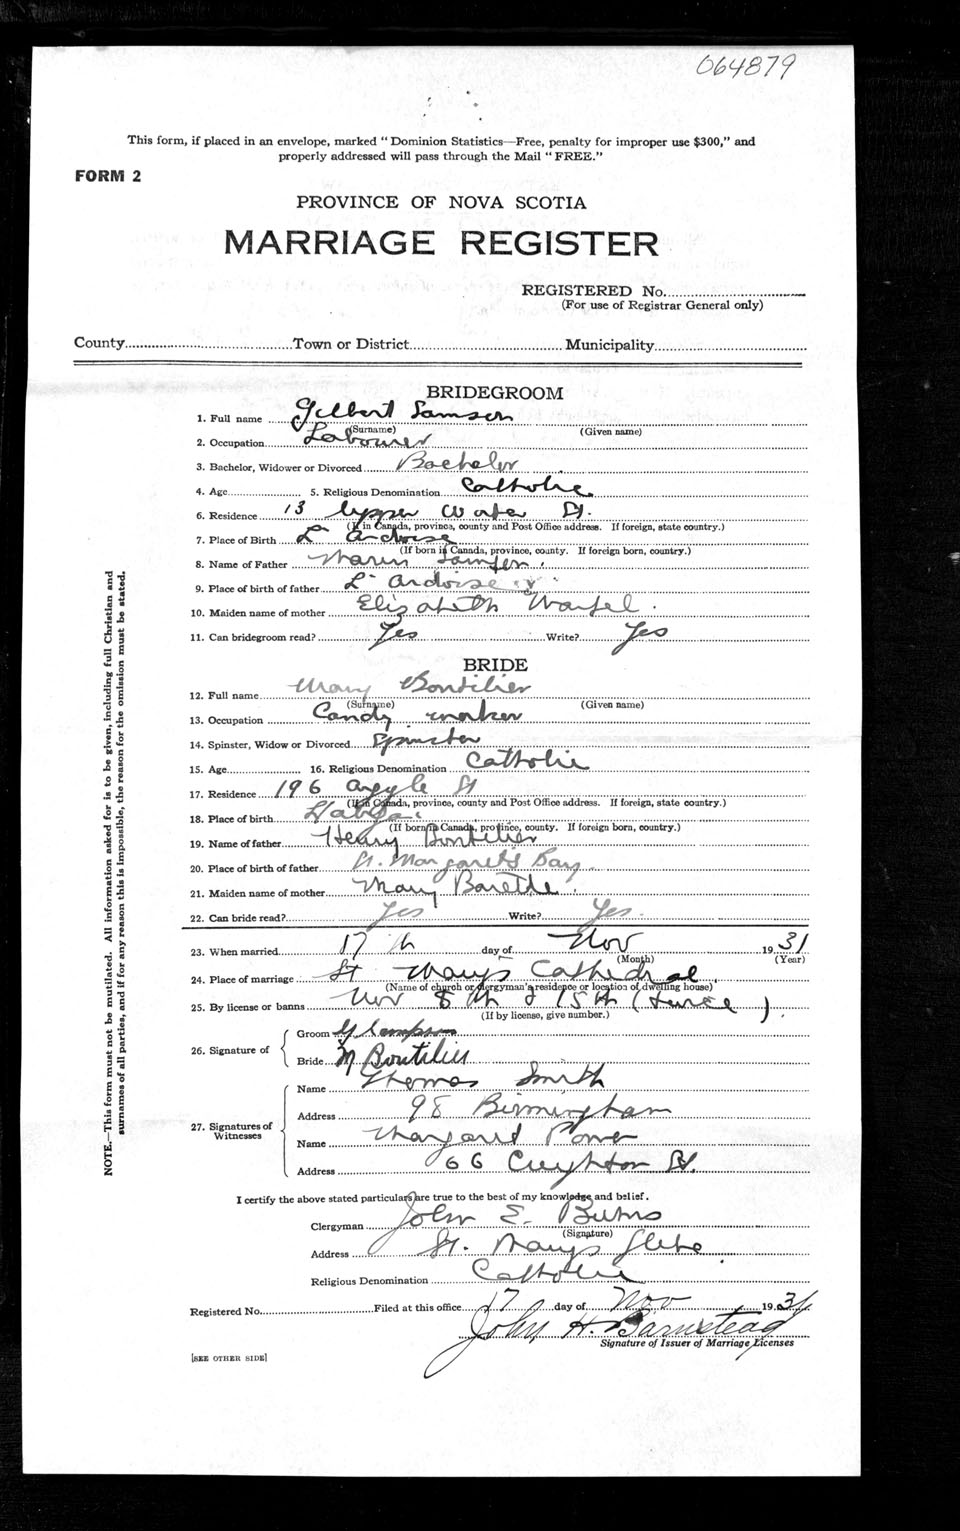 064879
This form, if placed in an envelope, marked "Dominion Statistics—Free, penalty for improper use $300," and
properly addressed will pass through the Mail "FREE."
FORM 2
PROVINCE OF NOVA SCOTIA
MARRIAGE REGISTER
REGISTERED No.
(For use of Registrar General only)
County Town or District Municipality
BRIDEGROOM
1. Full name Gilbert Samson
(Surname) (Given name)
2. Occupation Labourer
3. Bachelor, Widower or Divorced Bachelor
4. Age 5. Religious Denomination Catholic
6. Residence 13 Upper Water St.
(If in Canada, province, county and Post Office address. If foreign, state country.)
7. Place of Birth L'Ardoise
(If born in Canada, province, county. If foreign born, country.)
8. Name of Father Samson
9. Place of birth of father L'Ardoise
10. Maiden name of mother Elizabeth
11. Can bridegroom read? Yes Write? Yes
BRIDE
12. Full name Mary Boutilier
(Surname) (Given name)
13. Occupation Candy worker
14. Spinster, Widow or Divorced Spinster
15. Age 16. Religious Denomination Catholic
17. Residence 196 Argyle St
(If in Canada, province, county and Post Office address. If foreign, state country.)
18. Place of birth
(If born in Canada, province, county. If foreign born, country.)
19. Name of father Henry Boutilier
20. Place of birth of father St. Margarets Bay
21. Maiden name of mother Mary
22. Can bride read? Yes Write? Yes.
23. When married 17th day of Nov 1931
(Month) (Year)
24. Place of marriage St Mary's Cathedral
(Name of church or clergyman's residence or location of dwelling house)
25. By license or banns Nov 8th & 15th (twice)
(If by license, give number.)
26. Signature of
Groom G Sampson
Bride M Boutilier
27. Signatures of Witnesses
Name Thomas Smith
Address 98 Birmingham
Name Margaret Power
Address 66 Creighton St.
I certify the above stated particulars are true to the best of my knowledge and belief.
Clergyman John E. Burns
(Signature)
Address St. Marys Glebe
Religious Denomination Catholic
Registered No. Filed at this office 17 day of Nov 1931
John H. Barnstead
Signature of Issuer of Marriage Licenses
[SEE OTHER SIDE]
NOTE.—This form must not be mutilated. All information asked for is to be given, including full Christian and
surnames of all parties, and if for any reason this is impossible, the reason for the omission must be stated.